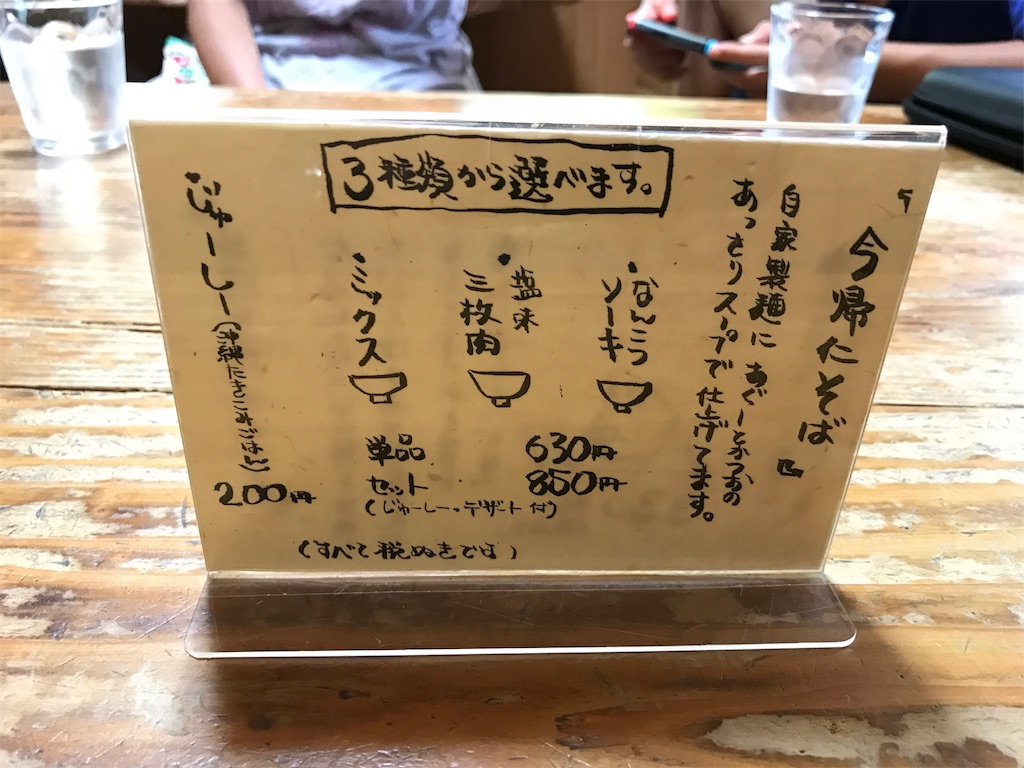 今帰仁そば
自家製麺に あぐーとかつおの
あっさりスープで 仕上げてます。
3種類から選べます。
・なんこつ
ソーキ
・塩味
三枚肉
・ミックス
単品 630円
セット 850円
(じゅーしー・デザート付)
(すべて税ぬきです)
・じゅーしー(沖縄たきこみごはん)
200円